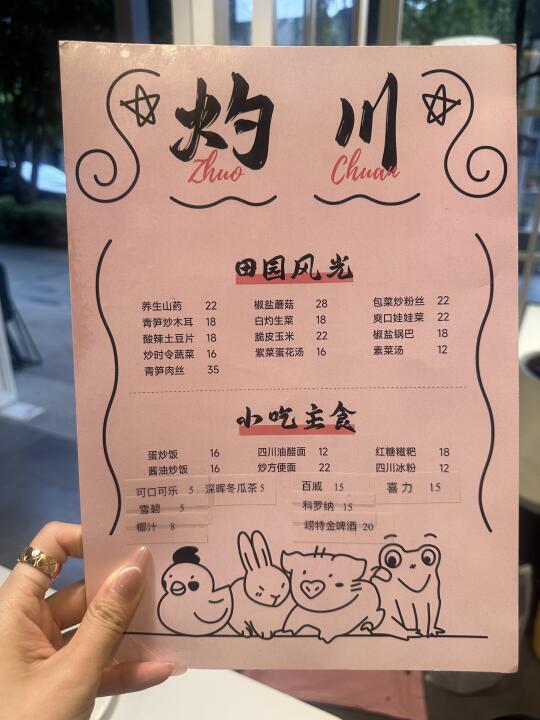 灼 川
Zhuo Chuan
田园风光
养生山药 22 椒盐蘑菇 28 包菜炒粉丝 22
青笋炒木耳 18 白灼生菜 18 爽口娃娃菜 22
酸辣土豆片 18 脆皮玉米 22 椒盐锅巴 18
炒时令蔬菜 16 紫菜蛋花汤 16 素菜汤 12
青笋肉丝 35
小吃主食
蛋炒饭 16 四川油醋面 12 红糖糍粑 18
酱油炒饭 16 炒方便面 22 四川冰粉 12
可口可乐 5 深晖冬瓜茶 5 百威 15 喜力 15
雪碧 5 科罗纳 15
椰汁 8 崂特金啤酒 20